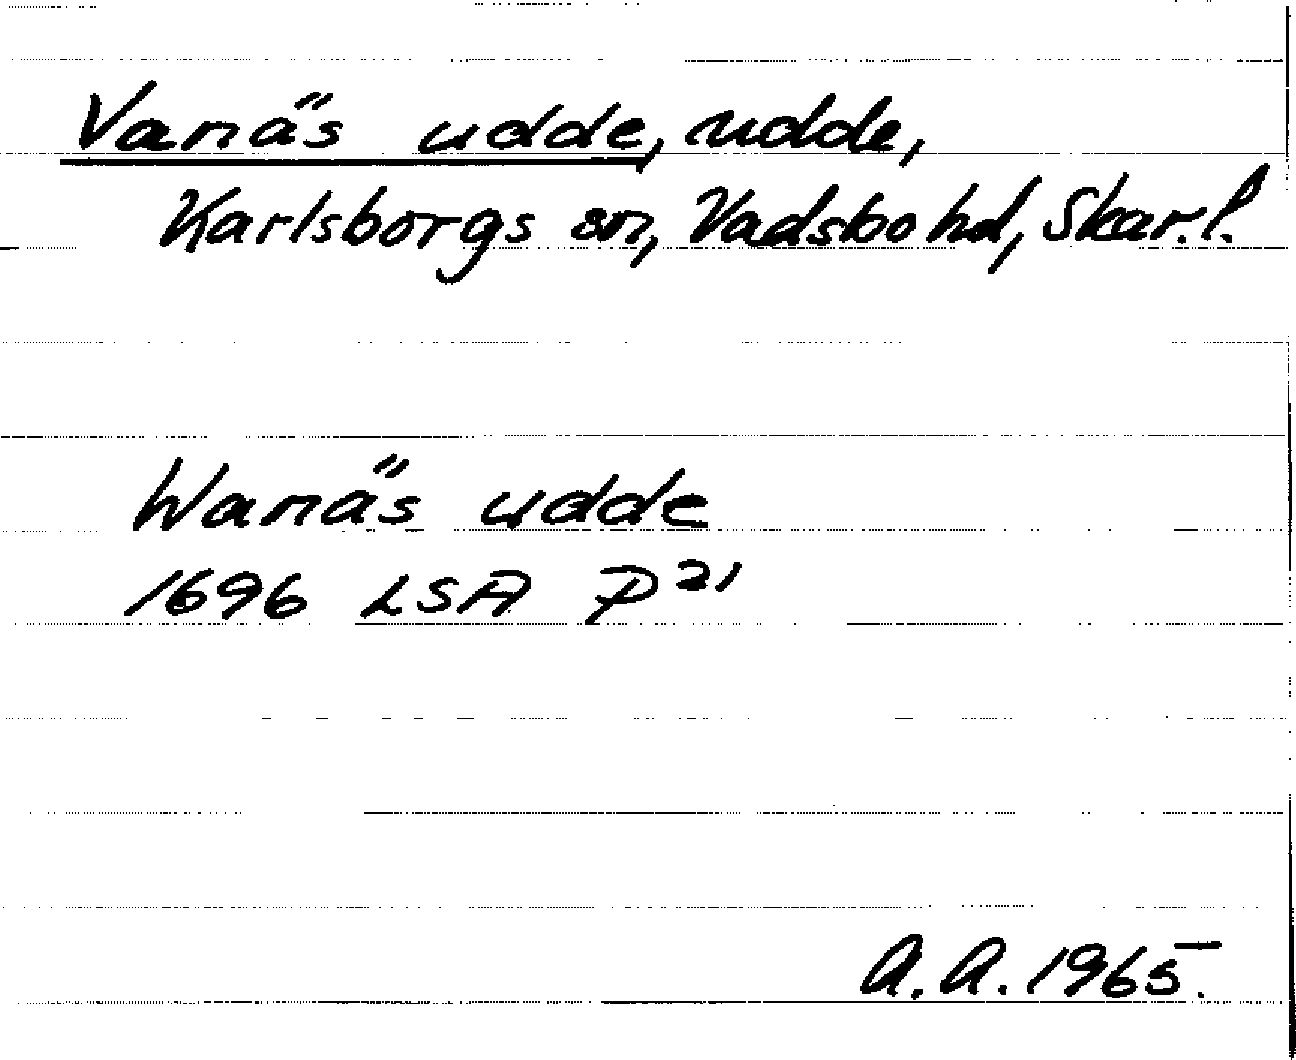 Vanäs udde, udde,
Karlsborgs sn, Vadsbo hd, Skar.l.
Wanäs udde
1696 LSA P²¹
A.A. 1965.